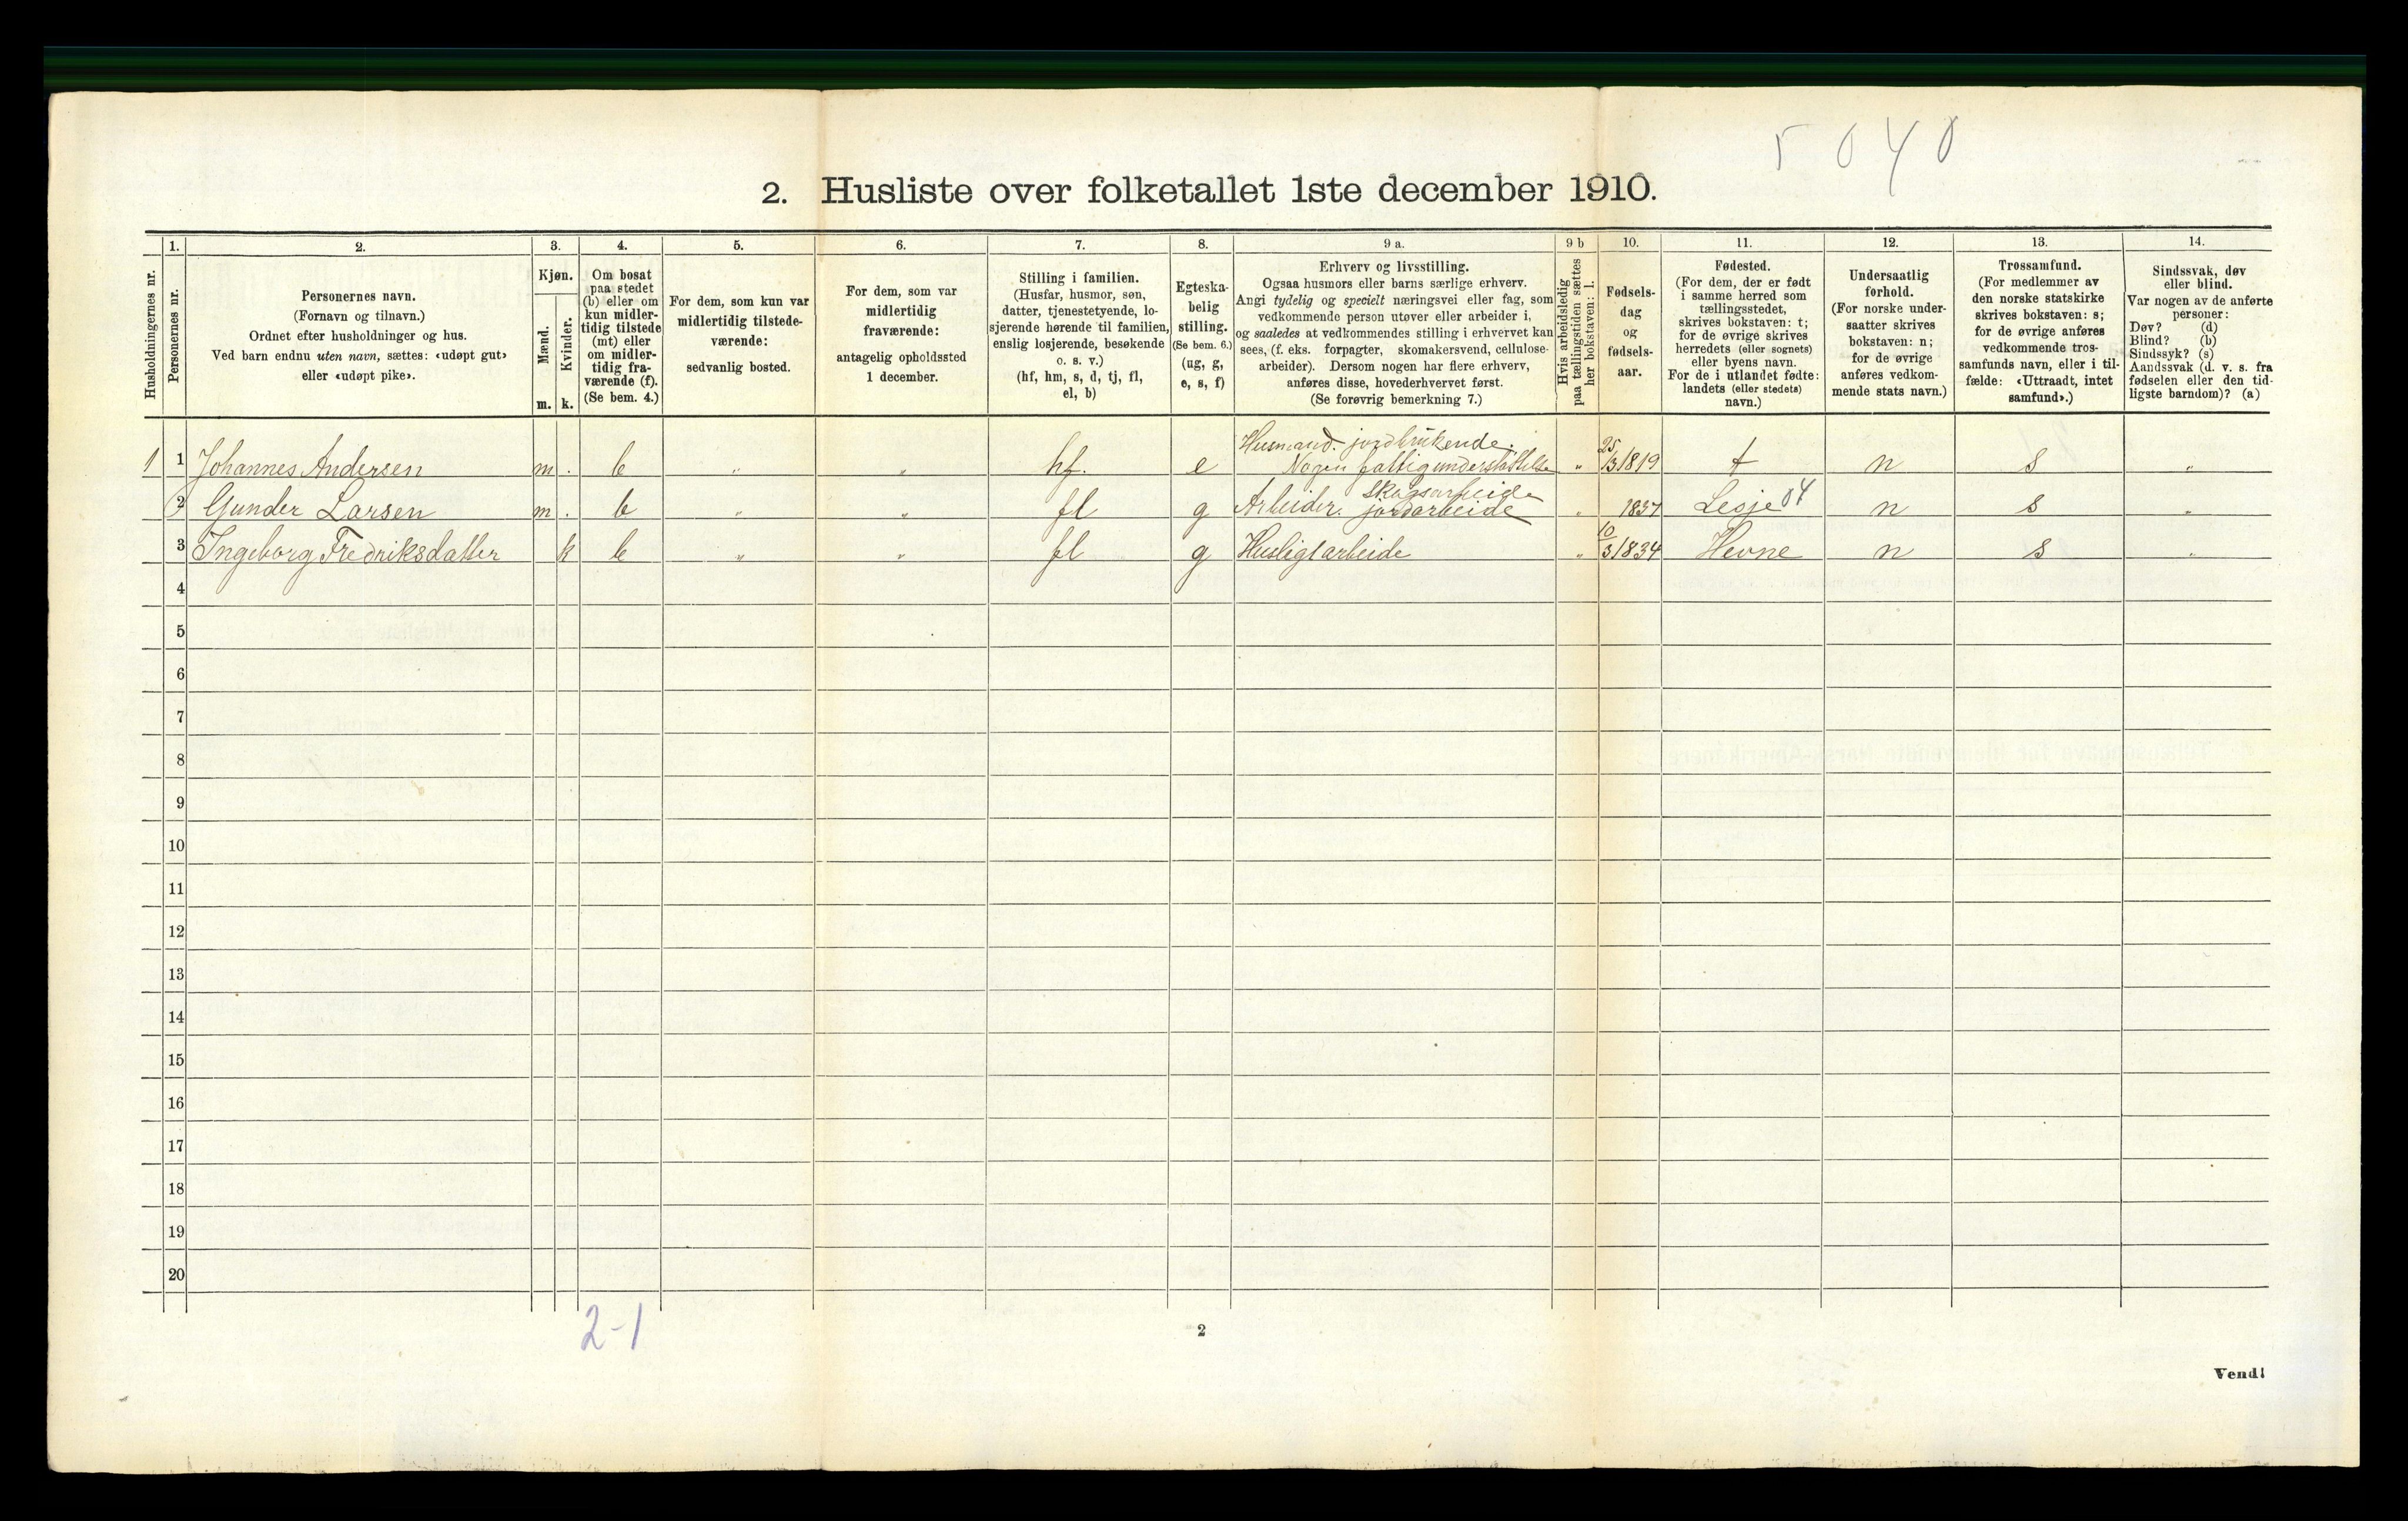 5 0 4 0
2. Husliste over folketallet 1ste december 1910.
Husholdningernes nr.
1.
Personernes nr.
2.
Personernes navn.
(Fornavn og tilnavn.)
Ordnet efter husholdninger og hus.
Ved barn endnu uten navn, sættes: «udøpt gut»
eller «udøpt pike».
3.
Kjøn.
Mænd.
Kvinder.
m. k.
4.
Om bosat
paa stedet
(b) eller om
kun midler-
tidig tilstede
(mt) eller
om midler-
tidig fra-
værende (f).
(Se bem. 4.)
5.
For dem, som kun var
midlertidig tilstede-
værende:
sedvanlig bosted.
6.
For dem, som var
midlertidig
fraværende:
antagelig opholdssted
1 december.
7.
Stilling i familien.
(Husfar, husmor, søn,
datter, tjenestetyende, lo-
sjerende hørende til familien,
enslig losjerende, besøkende
o. s. v.)
(hf, hm, s, d, tj, fl,
el, b)
8.
Egteska-
belig
stilling.
(Se bem. 6.)
(ug, g,
e, s, f)
9 a.
Erhverv og livsstilling.
Ogsaa husmors eller barns særlige erhverv.
Angi tydelig og specielt næringsvei eller fag, som
vedkommende person utøver eller arbeider i,
og saaledes at vedkommendes stilling i erhvervet kan
sees, (f. eks. forpagter, skomakersvend, cellulose-
arbeider). Dersom nogen har flere erhverv,
anføres disse, hovederhvervet først.
(Se forøvrig bemerkning 7.)
9 b
Hvis arbeidsledig
paa tællingstiden sættes
her bokstaven: l.
10.
Fødsels-
dag
og
fødsels-
aar.
11.
Fødested.
(For dem, der er født
i samme herred som
tællingsstedet,
skrives bokstaven: t;
for de øvrige skrives
herredets (eller sognets)
eller byens navn.
For de i utlandet fødte:
landets (eller stedets)
navn.)
12.
Undersaatlig
forhold.
(For norske under-
saatter skrives
bokstaven: n;
for de øvrige
anføres vedkom-
mende stats navn.)
13.
Trossamfund.
(For medlemmer av
den norske statskirke
skrives bokstaven: s;
for de øvrige anføres
vedkommende tros-
samfunds navn, eller i til-
fælde: «Uttraadt, intet
samfund».)
14.
Sindssvak, døv
eller blind.
Var nogen av de anførte
personer:
Døv? (d)
Blind? (b)
Sindssyk? (s)
Aandssvak (d. v. s. fra
fødselen eller den tid-
ligste barndom)? (a)
1 1 Johannes Andersen m . b „ „ hf. e Husmand. jordbrukende. Nogen fattigunderstøttelse „ 25/3 1819 t n s „
2 Gunder Larsen m . b „ „ fl g Arbeider. skogsarbeide jordarbeide „ 1837 Lesje 04 n s „
3 Ingeborg Fredriksdatter k b „ „ fl g Husligtarbeide „ 10/3 1834 Hevne n s „
4
5
6
7
8
9
10
11
12
13
14
15
16
17
18
19
20
2-1
2
Vend!